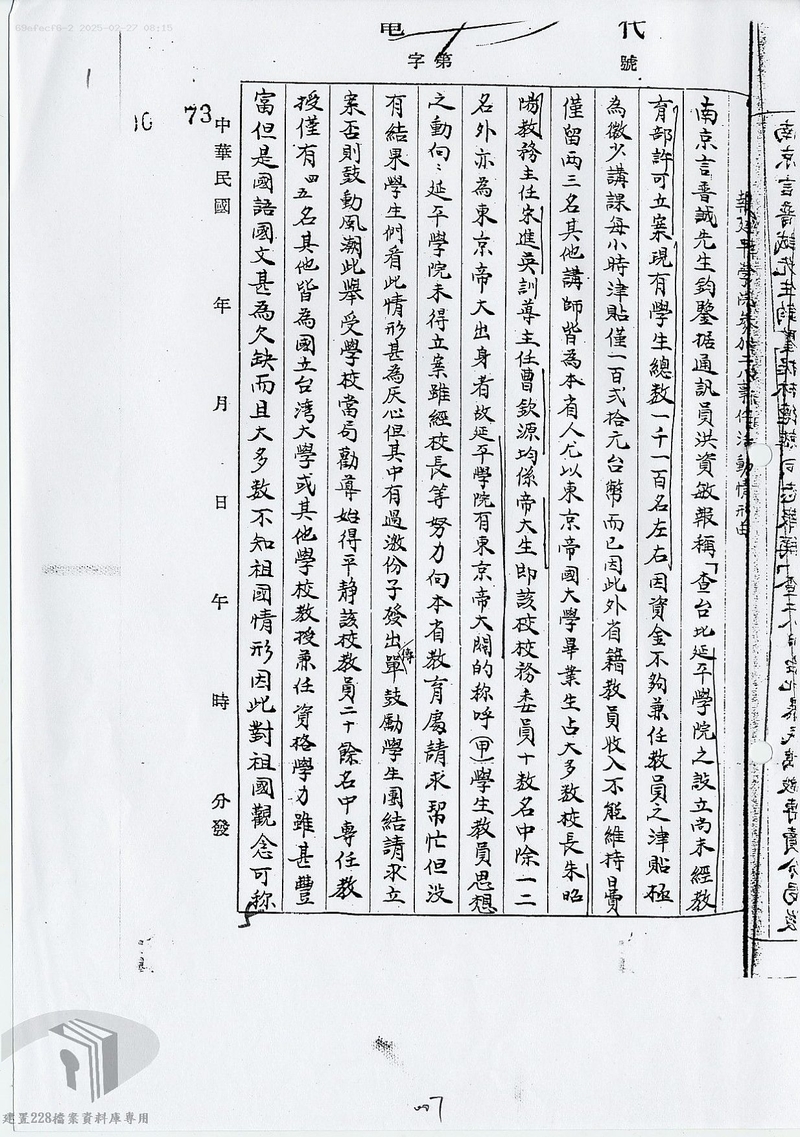 69efecf6-2 2025-02-27 08:15
代電
字第 號
報延平學院參加二二八事件活動情形由
南京言普誠先生鈞鑒據通訊員洪資敏報稱「查台北延平學院之設立尚未經教
育部許可立案現有學生總数一千一百名左右因資金不夠兼任教員之津貼極
為微少講課每小時津貼僅一百弍拾元台幣而已因此外省籍教員收入不能維持
僅留両三名其他講師皆為本省人尤以東京帝國大學畢業生占大多数校長朱昭
陽教務主任宋進英訓導主任曹欽源均係帝大生即該校校務委員十数名中除一二
名外亦為東京帝大出身者故延平學院有東京帝大閥的称呼(甲)學生教員思想
之動向:延平學院未得立案雖經校長等努力向本省教育處請求幫忙但没
有結果學生們看此情形甚為灰心但其中有過激份子發出傳單鼓勵學生團結請求立
案否則鼓動風潮此舉受學校當局勸導始得平静該校教員二十餘名中專任教
授僅有四五名其他皆為國立台湾大學或其他學校教授兼任資格學力雖甚豐
富但是國語國文甚為欠缺而且大多数不知祖國情形因此對祖國觀念可称
中華民國 年 月 日 午 時 分發
73
10
007
建置228檔案資料庫專用